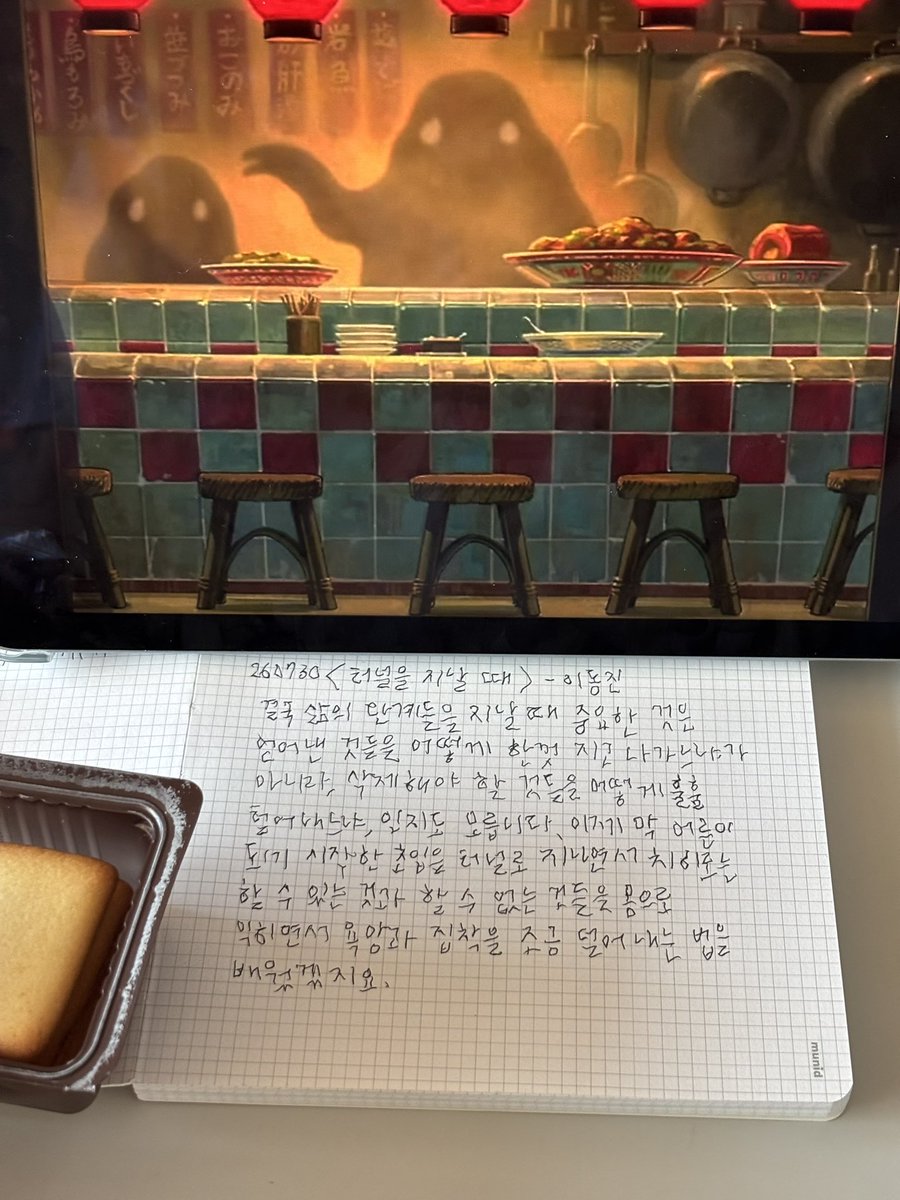 岩魚
おこのみ
鳥もろみ
260730 <터널을 지날 때> - 이동진
결국 삶의 단계들을 지날 때 중요한 것은
얻어낸 것들을 어떻게 한껏 지고 나가느냐가
아니라, 삭제해야 할 것들을 어떻게 훌훌
털어내느냐, 일지도 모릅니다. 이제 막 어른이
되기 시작한 초입을 터널로 지나면서 치히로는
할 수 있는 것과 할 수 없는 것들을 몸으로
익히면서 욕망과 집착을 조금 덜어내는 법을
배웠겠지요.
munid